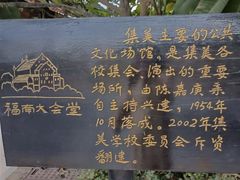 集美主要的公共
文化场馆。是集美各
校集会、演出的重要
场所，由陈嘉庚亲
自主持兴建，1954年
10月落成。2002年集
美学校委员会斥资
翻建。
福南大会堂